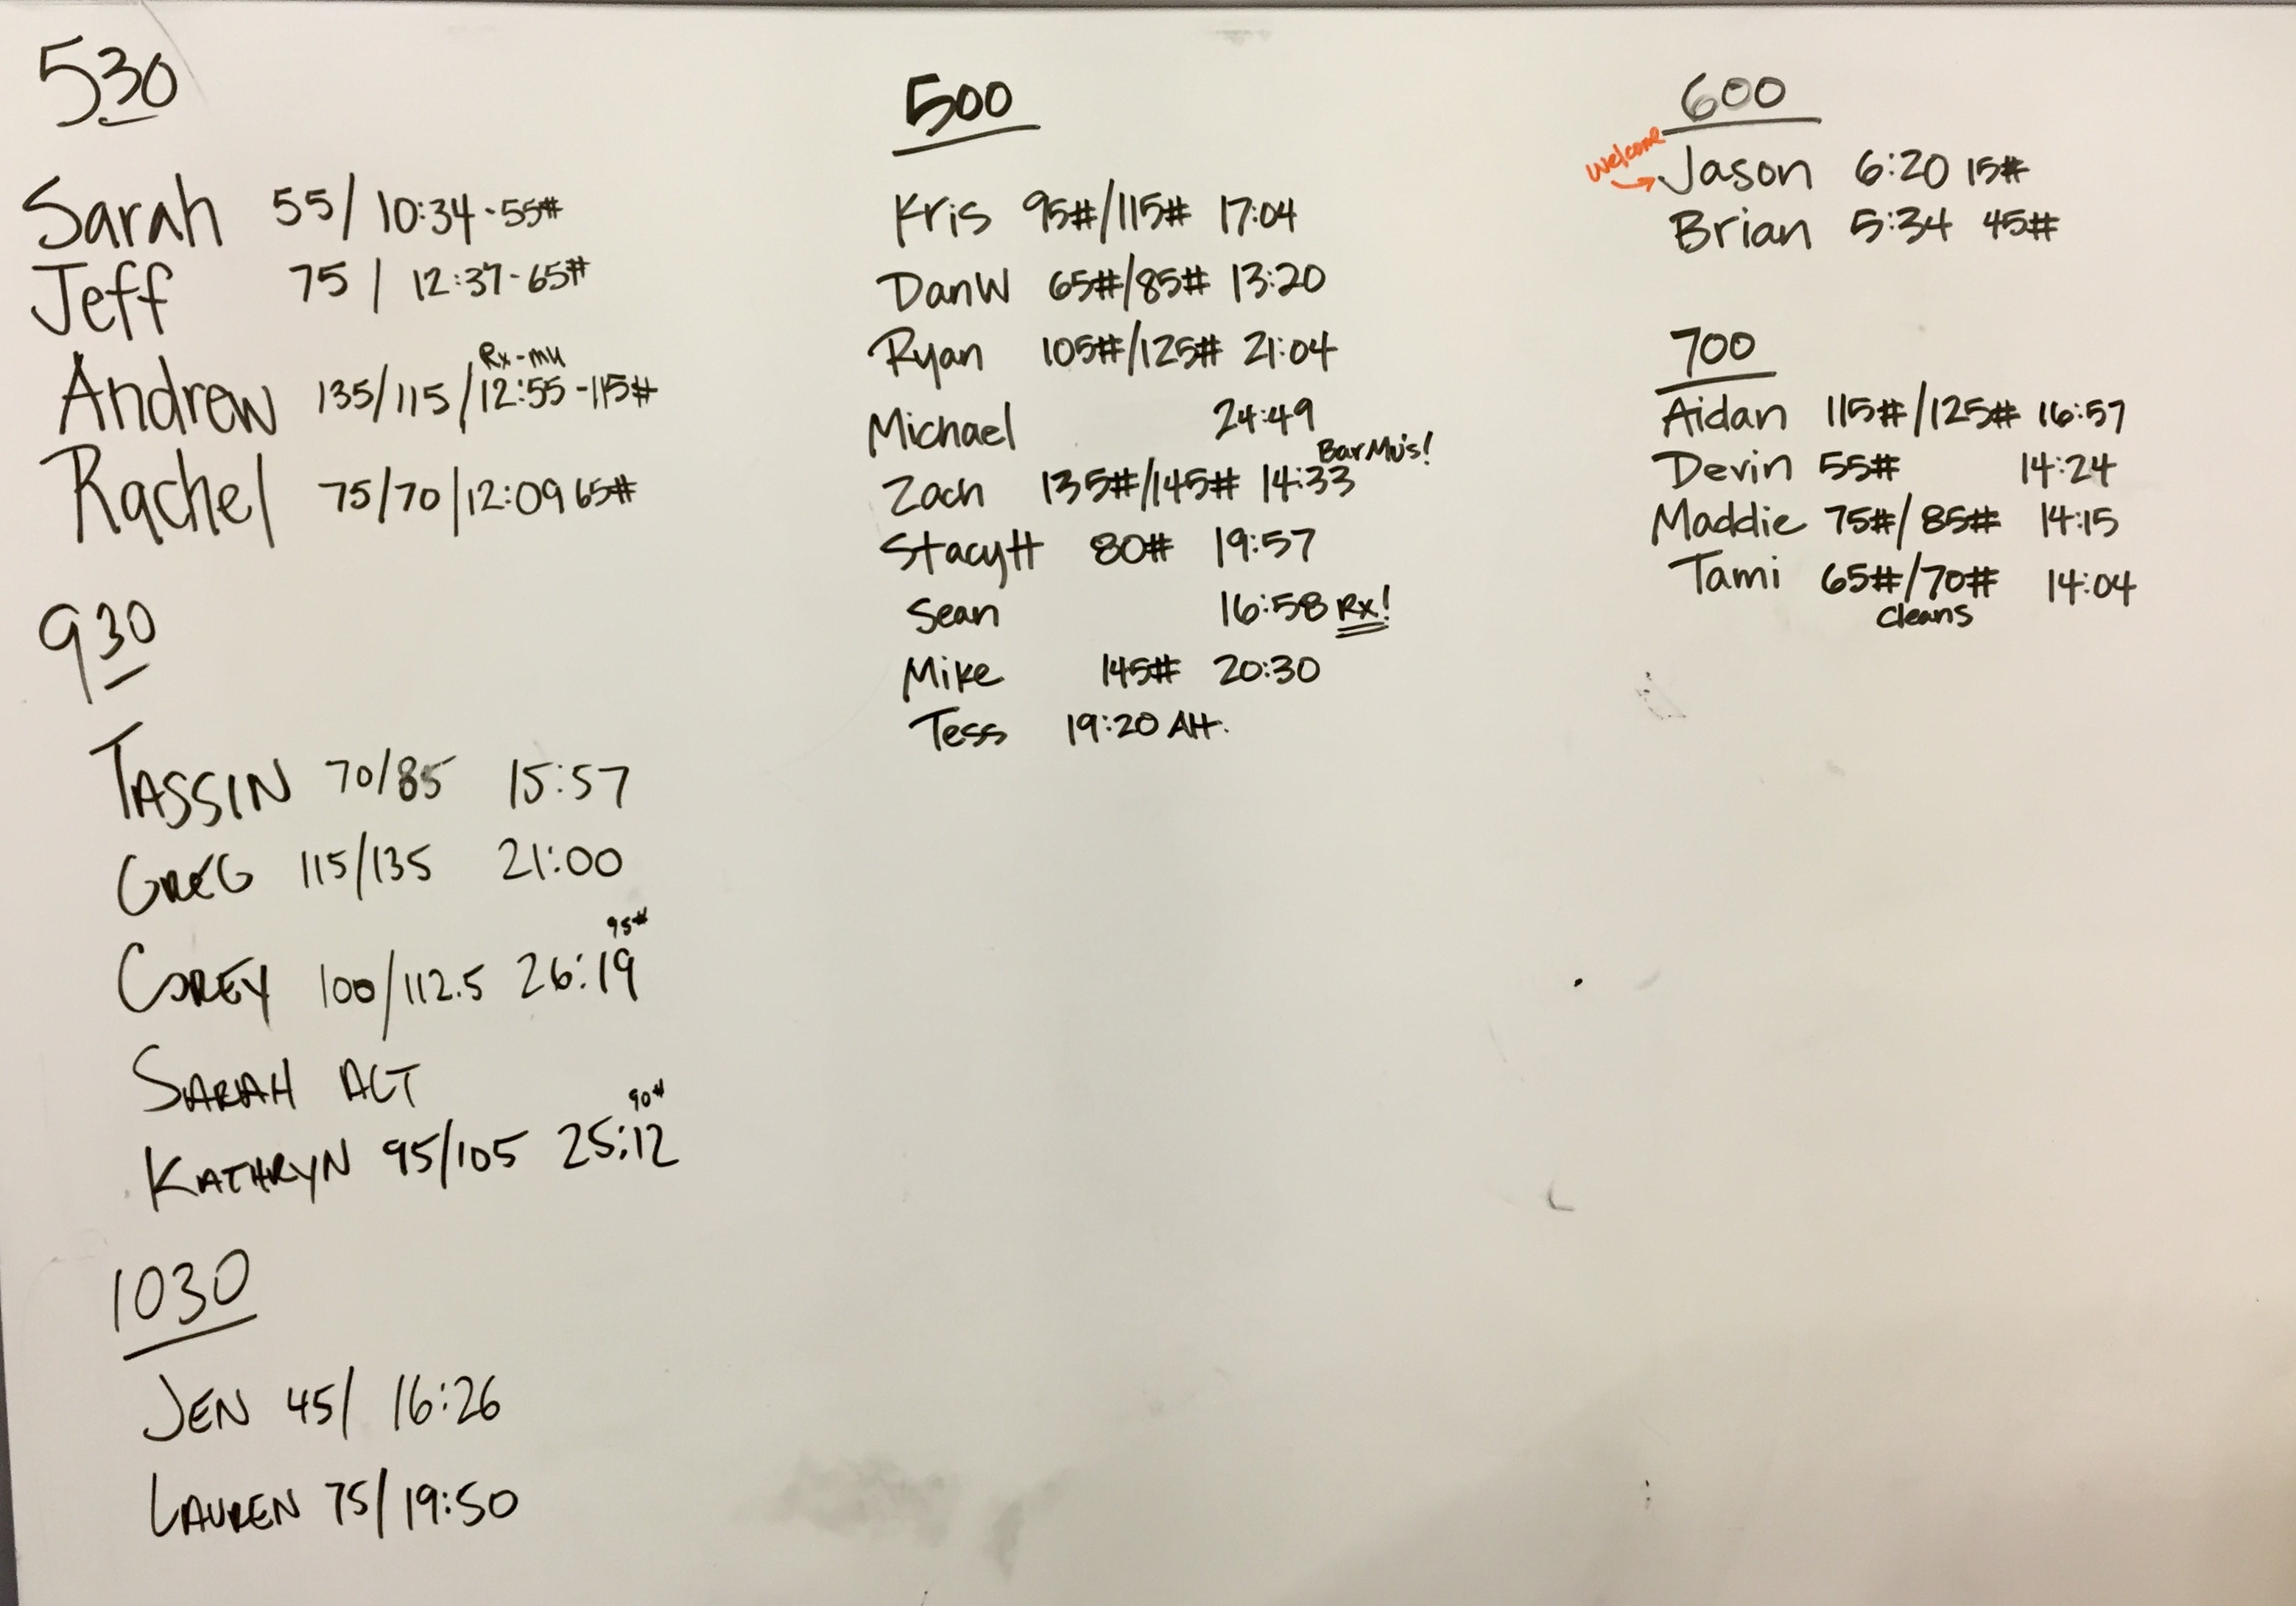 530
Sarah 55/ 10:34-55#
Jeff 75 / 12:37-65#
Rx-mu
Andrew 135/115/12:55-115#
Rachel 75/70/12:09 65#
930
TASSIN 70/85 15:57
GREG 115/135 21:00
95#
COREY 100/112.5 26:19
SARAH ACT
90#
KATHRYN 95/105 25:12
1030
JEN 45/ 16:26
LAUREN 75/19:50
500
Kris 95#/115# 17:04
Dan W 65#/85# 13:20
Ryan 105#/125# 21:04
Michael 24:49
Bar Mu's!
Zach 135#/145# 14:33
Stacy H 80# 19:57
Sean 16:58 Rx!
Mike 145# 20:30
Tess 19:20 Alt.
600
Welcome
Jason 6:20 15#
Brian 5:34 45#
700
Aidan 115#/125# 16:57
Devin 55# 14:24
Maddie 75#/85# 14:15
Tami 65#/70# 14:04
Cleans